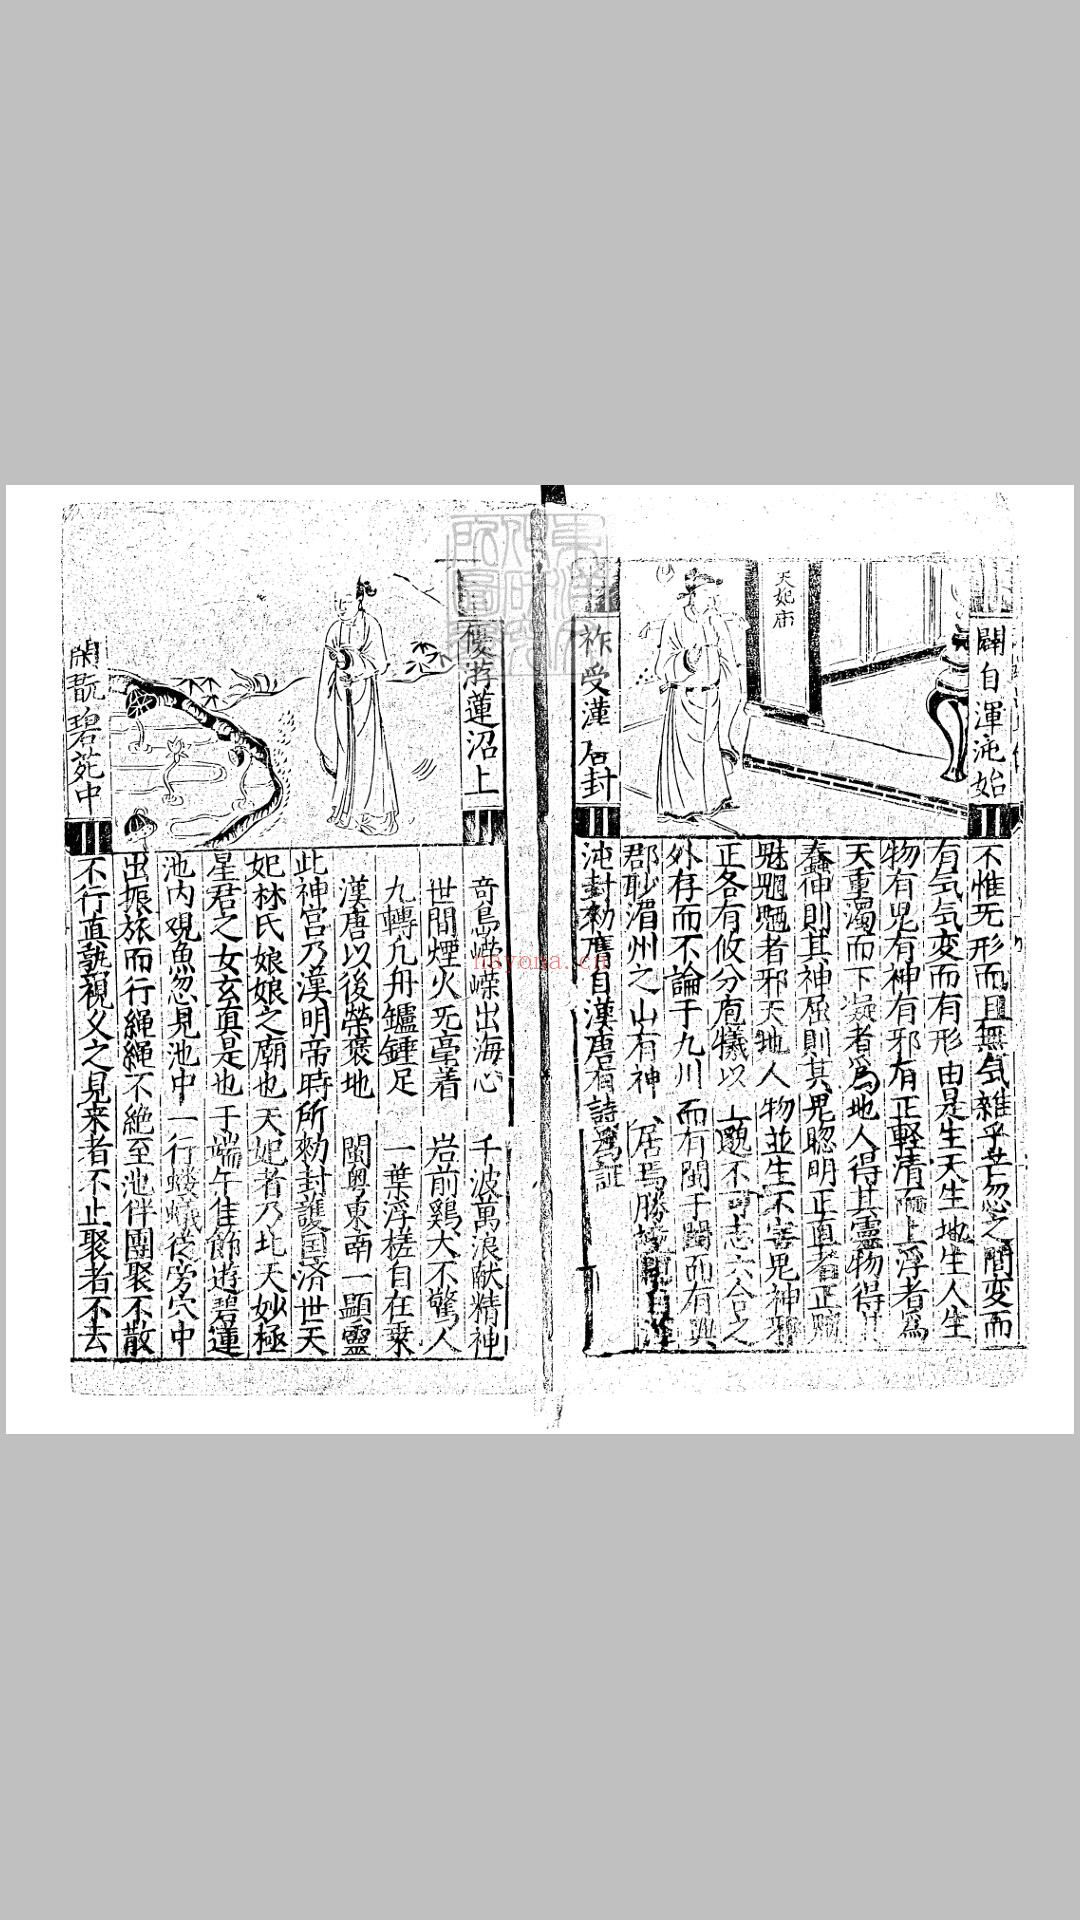 闢自渾沌始
天妃庙
祚受漢君封
不惟旡形而且無気雑乎芒忽之間变而
有気気变而有形由是生天生地生人生
物有鬼有神有邪有正軽清而上浮者爲
天重濁而下凝者爲地人得其靈物得其
蠢伸則其神屈則其鬼聡明正直者正
魅魍魎者邪天地人物並生不害鬼神邪
正各有攸分庖犧以上邈不可志六合之
外存而不論于九州而有閩于閩而有興
郡耿湄州之山有神居焉勝
沌封勑膺自漢唐有詩爲証
優游蓮沼上
閑翫碧苑中
奇島嶸嶸出海心 千波萬浪献精神
世間煙火旡毫着 岩前鷄犬不驚人
九轉几舟鑪錘足 一葉浮槎自在乗
漢唐以後榮褒地 閩粤東南一顯靈
此神宮乃漢明帝時所勑封護国済世天
妃林氏娘娘之廟也天妃者乃北天妙極
星君之女玄真是也于端午佳節遊碧蓮
池内覌魚忽見池中一行螻蟻従旁穴中
出振旅而行繩繩不絶至池伴團聚不散
不行直孰視久之見来者不止聚者不去
hayona.cn